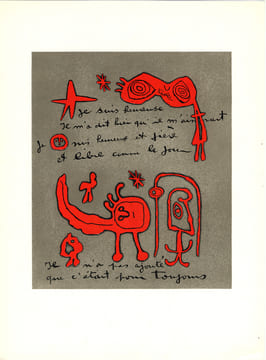 Je suis heureuse
Il m'a dit hier qu'il m'aimait
Je suis heureuse et fière
et libre comme le jour
Il n'a pas ajouté
que c'était pour toujours